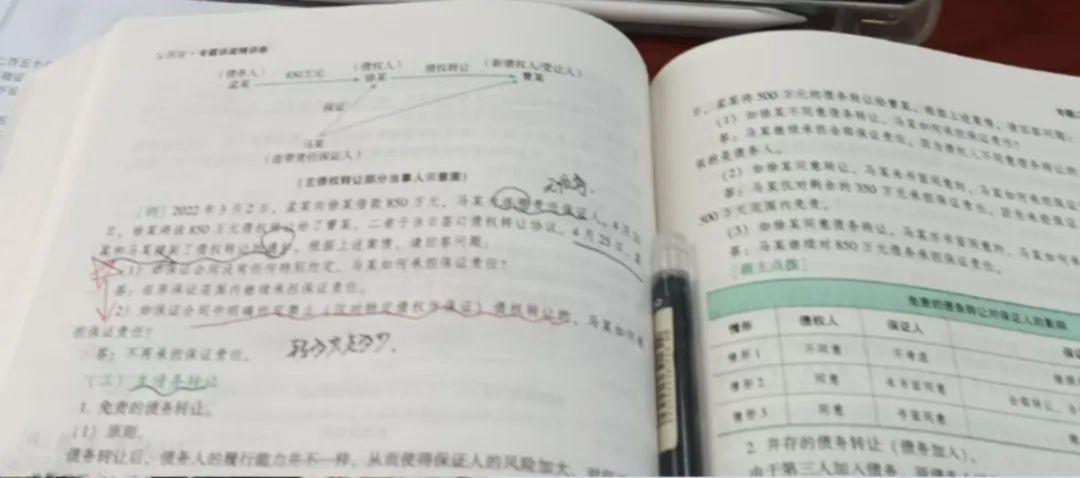 专题讲座精讲卷
（债务人） 850万元 （债权人） 债权转让 （新债权人/受让人）
孟某 徐某 曹某
保证
马某
（连带责任保证人）
（主债权转让部分当事人示意图）
［例］2022年3月2日，孟某向徐某借款850万元，马某 连带责任保证人。4月
日，徐某将该850万元债权转让给了曹某，二者于当日签订债权转让协议。4月25日，
某和马某 了债权转让的 。根据上述案情，请回答问题：
（1）如保证合同没有任何特别约定，马某如何承担保证责任？
答：在原保证范围内继续承担保证责任。
（2）如保证合同中明确约定禁止（仅对特定债权作保证）债权转让的，马某如何
担保证责任？
答：不再承担保证责任。
（三）主债务转让
1. 免责的债务转让。
（1）原则。
债务转让后，债务人的履行能力并不一样，从而使得保证人的风险加大，
日，孟某将500万元的债务转让给曹某。根据上述案情，请回答问题：
（1）如徐某不同意债务转让，马某如何承担保证责任？
答：马某继续承担全部保证责任。因为债权人不同意债务转让的
依然是债务人。
（2）如徐某同意转让，马某未书面同意的，马某如何承担保证
答：马某仅对剩余的350万元承担保证责任，因为未经保证
500万元范围内免责。
（3）如徐某同意债务转让，马某亦书面同意的，马某如何承
答：马某继续对850万元债务承担保证责任。
［萌主点拨］
免责的债务转让对保证人的影响
情形 债权人 保证人
情形1 不同意 不考虑
情形2 同意 未书面同意
情形3 同意 书面同意
2. 并存的债务转让（债务加入）。
由于第三人加入债务，